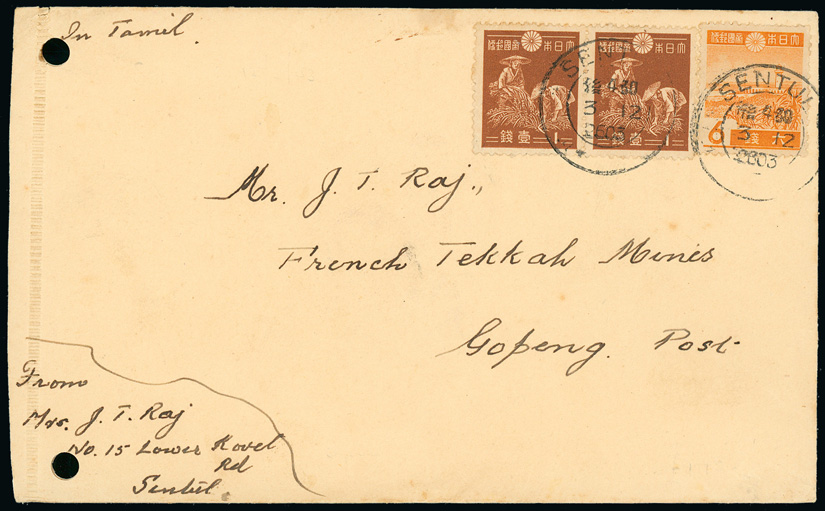 In Tamil.
鄊郵國帝本日大
鄊郵國帝本日大
鄊郵國帝本日大
1 錢壹
1 錢壹
6 錢
SENTUL
3 12
2603
SENTUL
3 12
2603
Mr. J. T. Raj.,
French Tekkah Mines
Gopeng. Post
From
Mrs. J. T. Raj
No. 15 Lower Kovel
Rd
Sentul